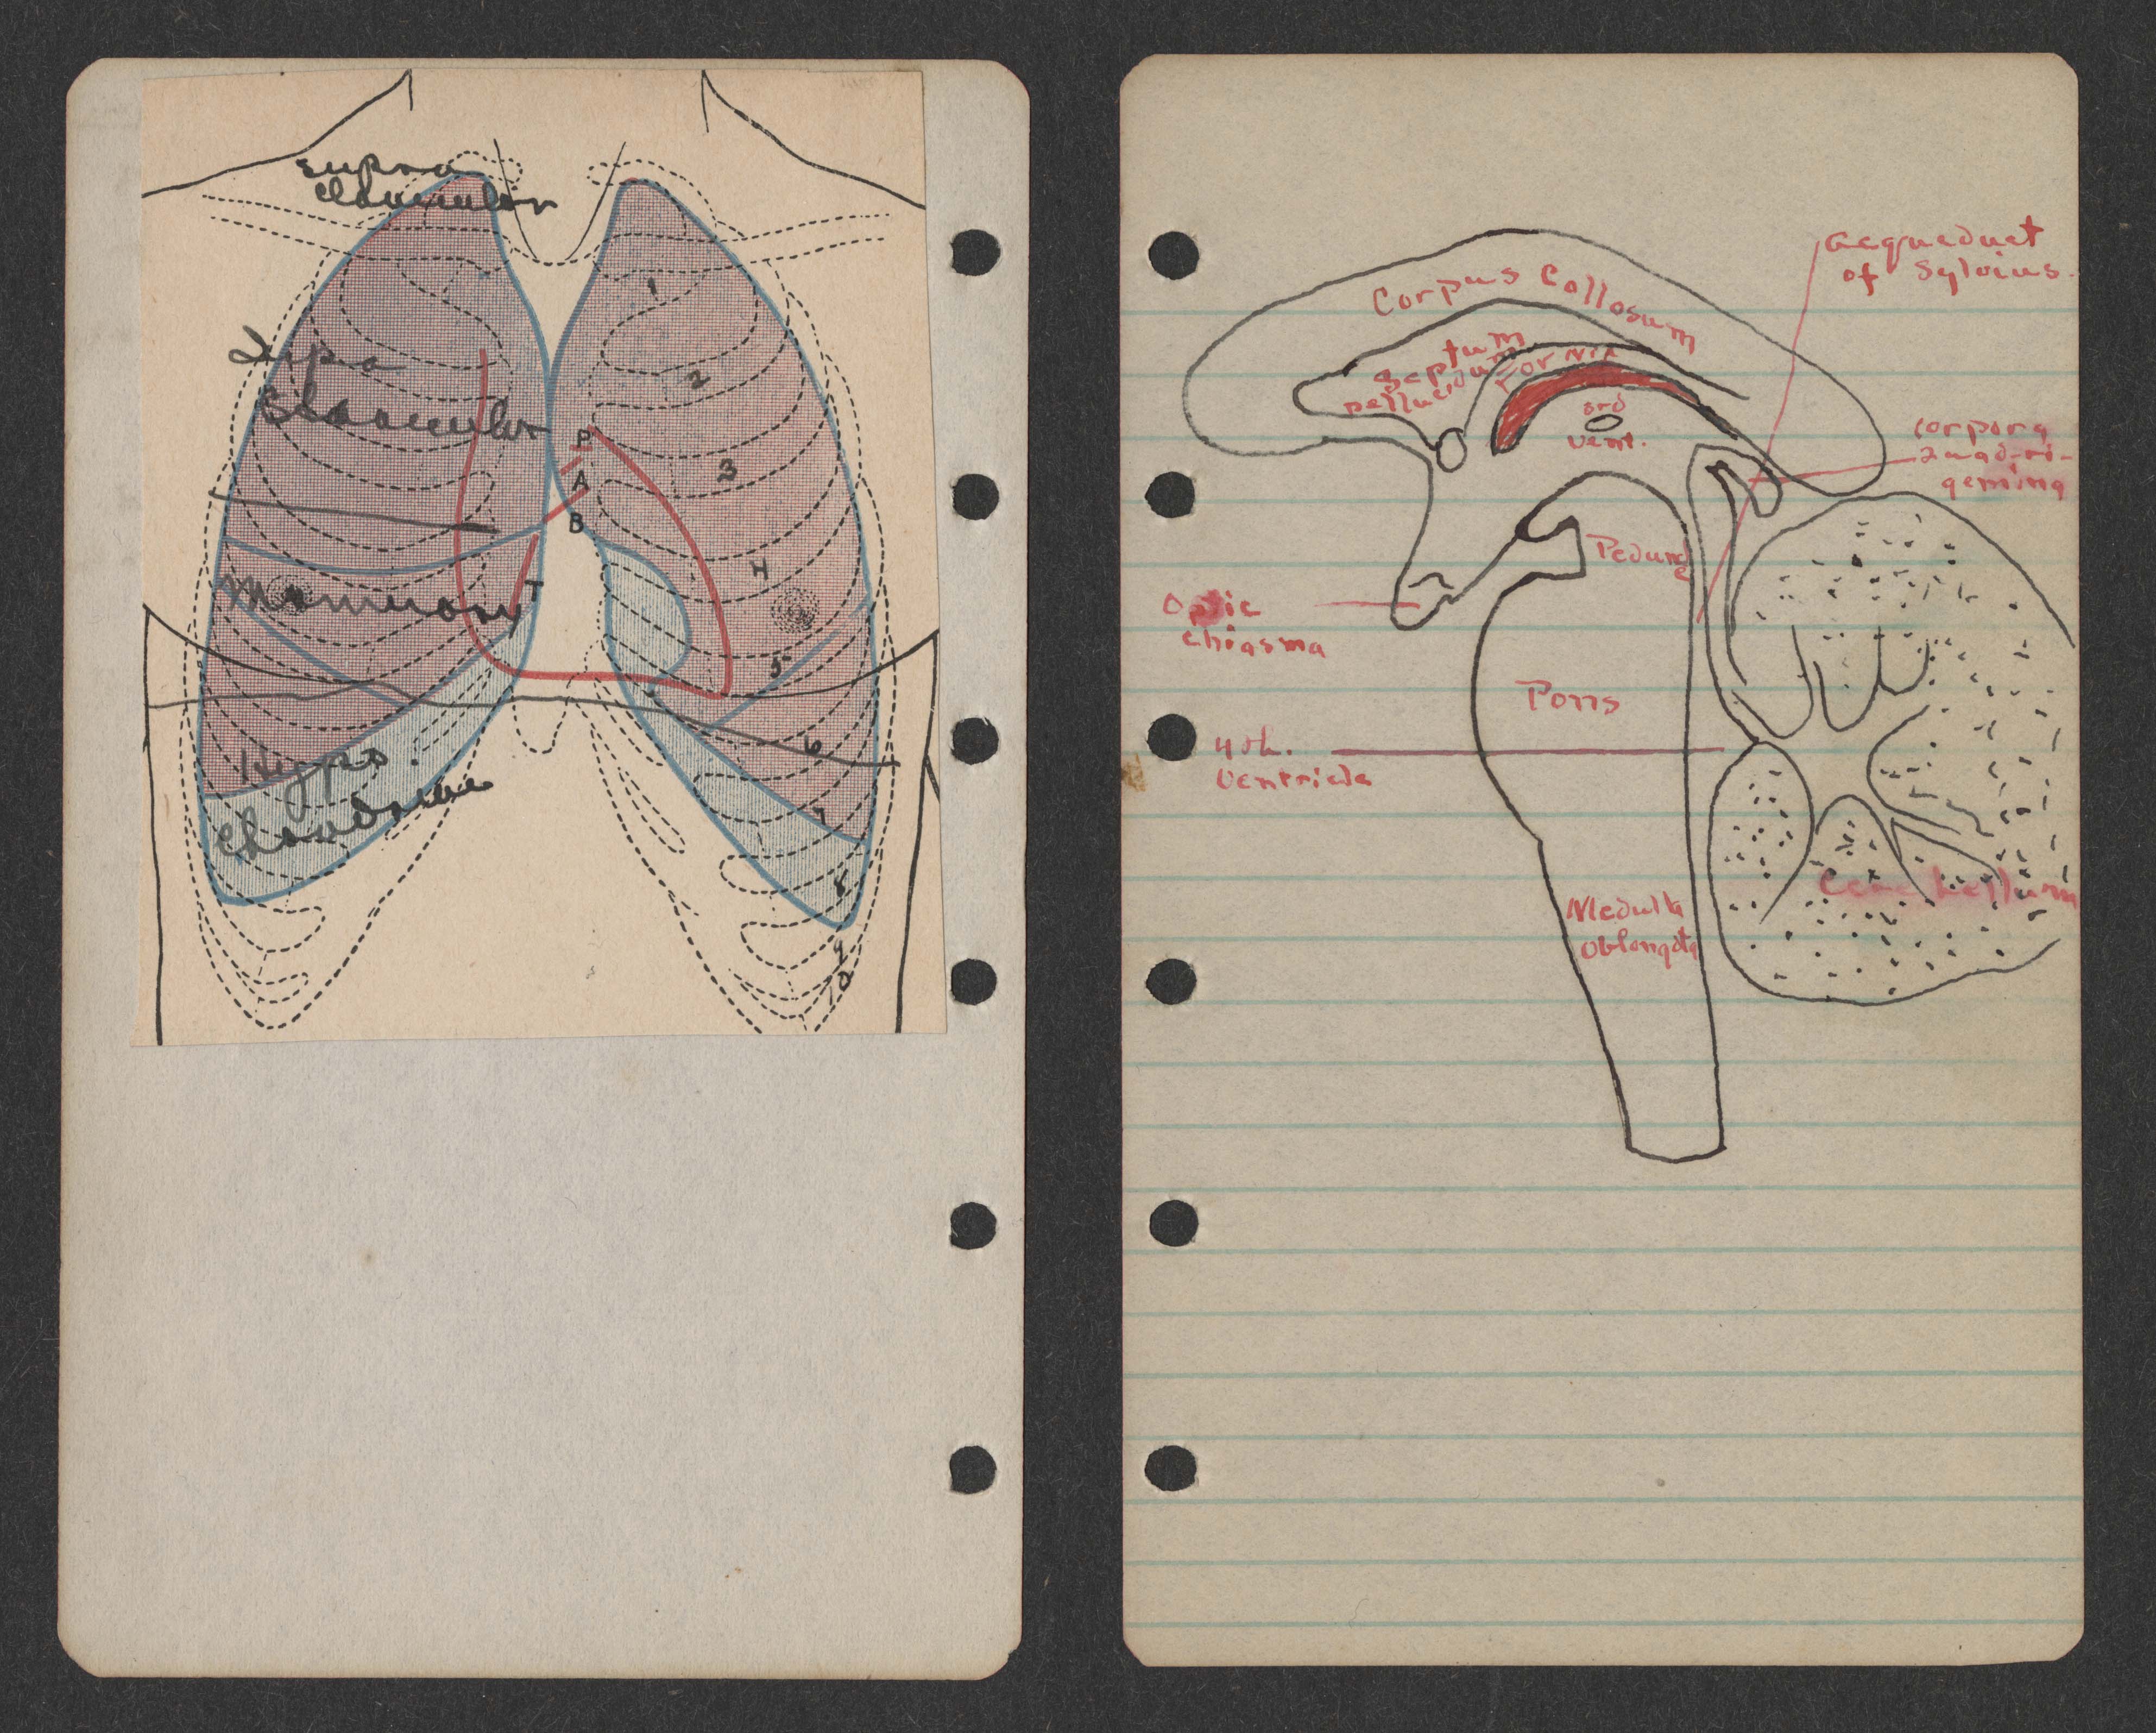 supra
Clavicular
Clavicular
Mammary
Hypo
Chondriac
1
2
3
4
5
6
7
8
9
10
P
A
B
T
Aequeduct
of Sylvius.
Corpus Collosum
Septum
pellucidum
Fornix
3rd
Vent.
corpora
quad-ri-
gemina
Pedunc
Optic
chiasma
Pons
4th.
Ventricle
Medulla
Oblongata
Cerebellum